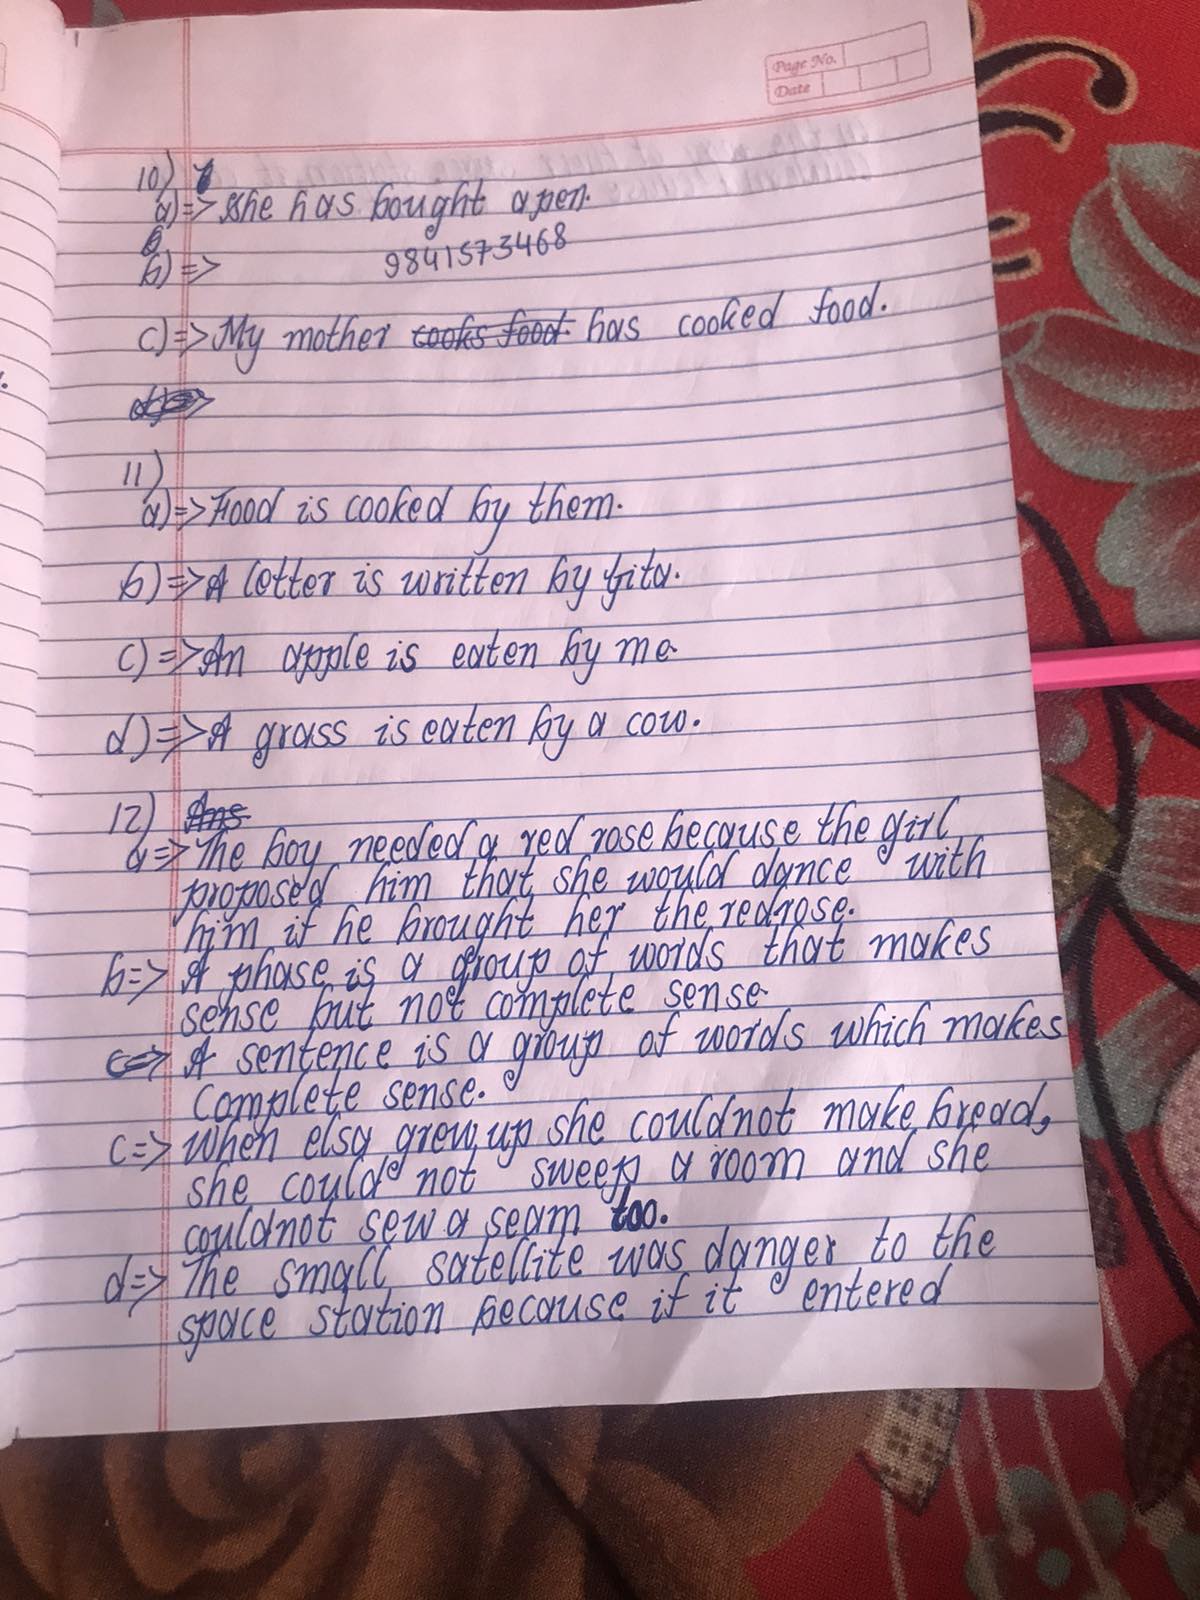 Page No.
Date
10)
a) => She has bought a pen.
b) => 9841573468
c) => My mother cooks food. has cooked food.
11)
a) => Food is cooked by them.
b) => A letter is written by Gita.
c) => An apple is eaten by me.
d) => A grass is eaten by a cow.
12) Ans
a => The boy needed a red rose because the girl
proposed him that she would dance with
him if he brought her the red rose.
b => A phase is a group of words that makes
sense but not complete sense.
c => A sentence is a group of words which makes
complete sense.
c => When elsa grew up she couldnot make bread,
she could not sweep a room and she
couldnot sew a seam too.
d => The small satellite was danger to the
space station because if it entered